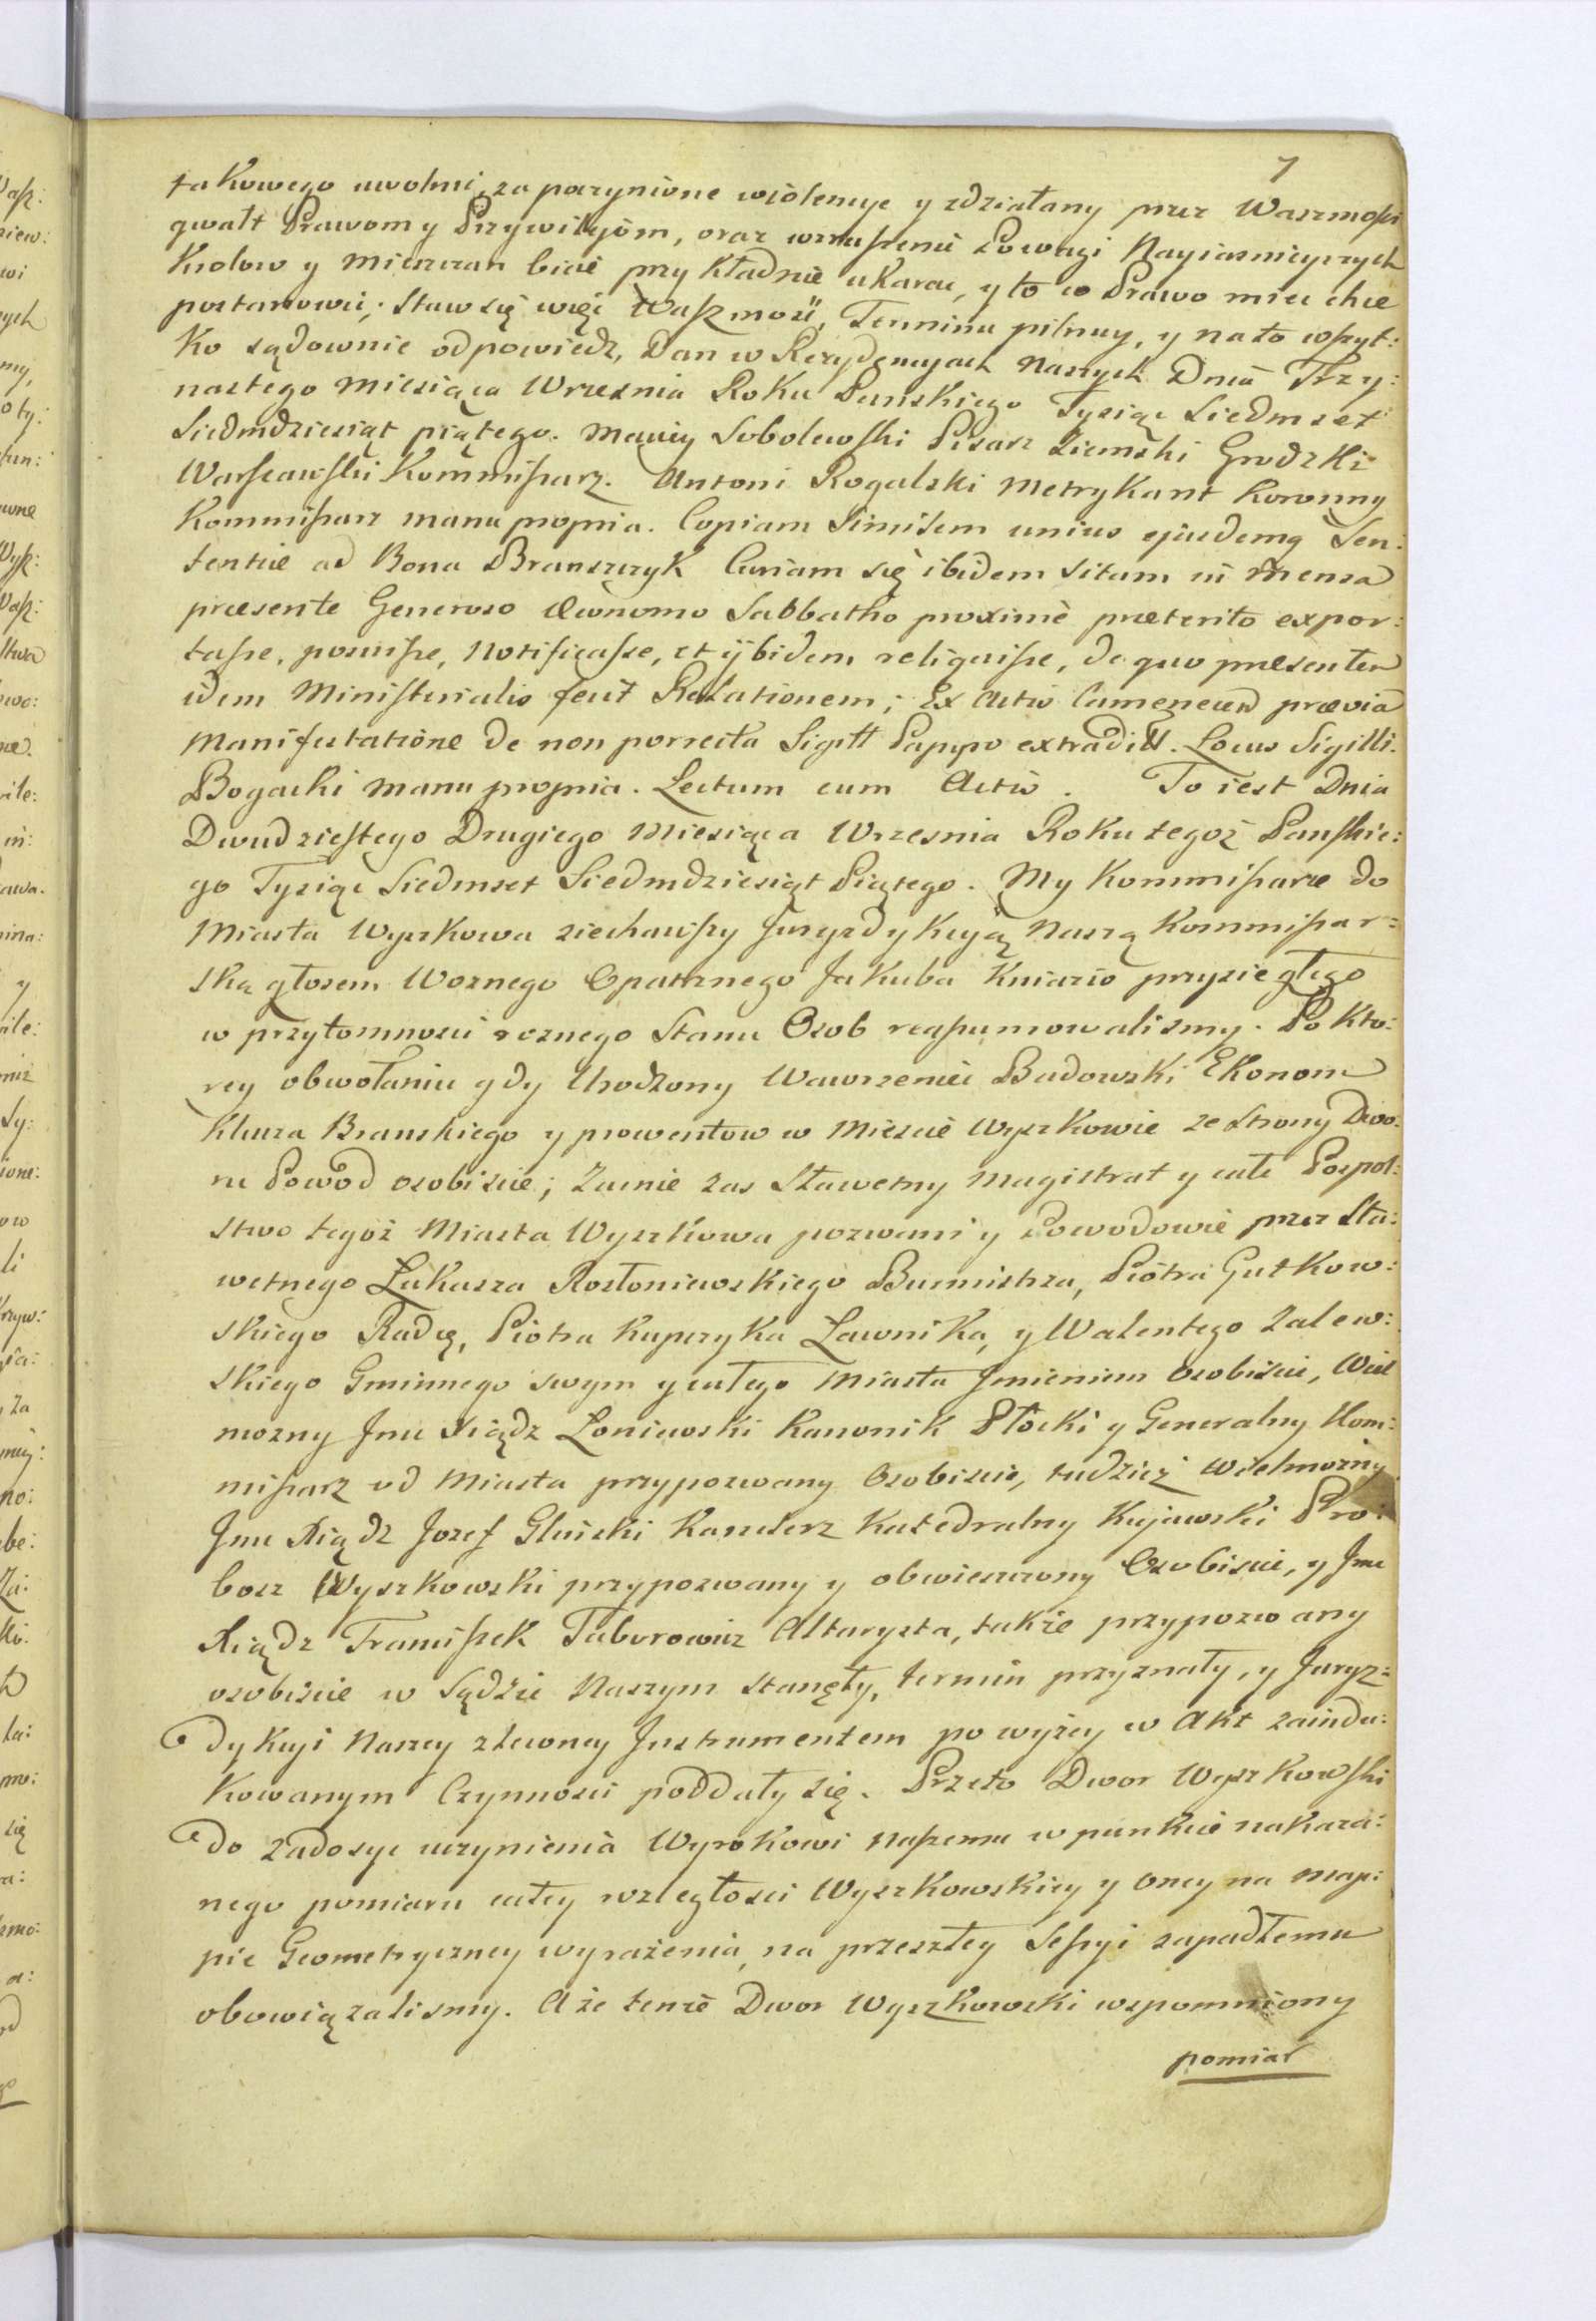 7
takowego uwolni, za poczynione wiolencye y zdziałany przez Waszmość
gwałt Prawom y Przywilejom, oraz wzruszenie Powagi Nayiasnieyszych
Krolow y Mieszczan bicie przykładnie ukarać, y to co Prawo mieć chce
postanowić; Staw się więc Waszmość, Terminu pilnuy, y na to wszyt:
ko sądownie odpowiedz, Dan w Rezydencyach Naszych Dnia Trzy:
nastego Miesiąca Wrzesnia Roku Panskiego Tysiąc Siedmset
Siedmdziesiąt piątego. Maciey Sobolewski Pisarz Ziemski Grodzki
Warszawski Kommissarz. Antoni Rogalski Metrykant Koronny
Kommissarz manu propria. Copiam Similem unius ejusdemq Sen:
tentiæ ad Bona Branszczyk Curiam się ibidem sitam in Mensa
præsente Generoso Œconomo Sabbatho proximè præterito expor:
tasse, posuisse, Notificasse, et ijbidem reliquisse, de quo præsentem
idem Ministerialis fecit Relationem; Ex Actis Camenecen prævia
Manifestatione de non porrecta Sigill Papyro extradit. Locus Sigilli.
Bogacki manu propria. Lectum cum Actis. To iest Dnia
Dwudziestego Drugiego Miesiąca Wrzesnia Roku tegoż Panskie:
go Tysiąc Siedmset Siedmdziesiąt Piątego. My Kommissarze do
Miasta Wyszkowa ziechawszy Juryzdykcyją Naszą Kommissar:
ską głosem Woznego Opatrznego Jakuba Kniazio przysięgłego
w przytomnosci roznego Stanu Osob reassumowalismy. Po kto:
rey obwołaniu gdy Urodzony Wawrzeniec Budowski Ekonom
Klucza Branskiego y prowentow w Miescie Wyszkowie ze Strony Dwo:
ru Powod osobiscie; Zacnie zas Sławetny Magistrat y całe Pospol:
stwo tegoż Miasta Wyszkowa pozwani y Powodowie przez Sła:
wetnego Łukasza Rosłoniewskiego Burmistrza, Piotra Gutkow:
skiego Radcę, Piotra Kupczyka Ławnika, y Walentego Zalew:
skiego Gminnego swym y całego Miasta Jmieniem Osobiscie, Wiel
mozny Jmc Xiądz Łoniewski Kanonik Płocki y Generalny Kom:
missarz od Miasta przypozwany Osobiscie, tudzież Wielmożny
Jmc Xiądz Jozef Gliński Kanclerz Katedralny Kujawski Pro:
boszcz Wyszkowski przypozwany y obwieszczony Osobiscie, y Jmc
Xiądz Franciszek Taborowicz Altarysta, także przypozwany
osobiscie w Sądzie Naszym stanęły, termin przyznały, y Juryz:
dykcyi Naszey zleconey Jnstrumentem powyżey w Akt zaindu:
kowanym Czynnosci poddały się. Przeto Dwor Wyszkowski
do zadosyc uczynienia Wyrokowi naszemu w punkcie nakaza:
nego pomiaru całey rozległosci Wyszkowskiey y oney na Map:
pie Geometryczney wyrażenia, na przeszłey Sessyi zapadłemu
obowiązalismy. A że tenże Dwor Wyszkowski wspomniony
pomiar